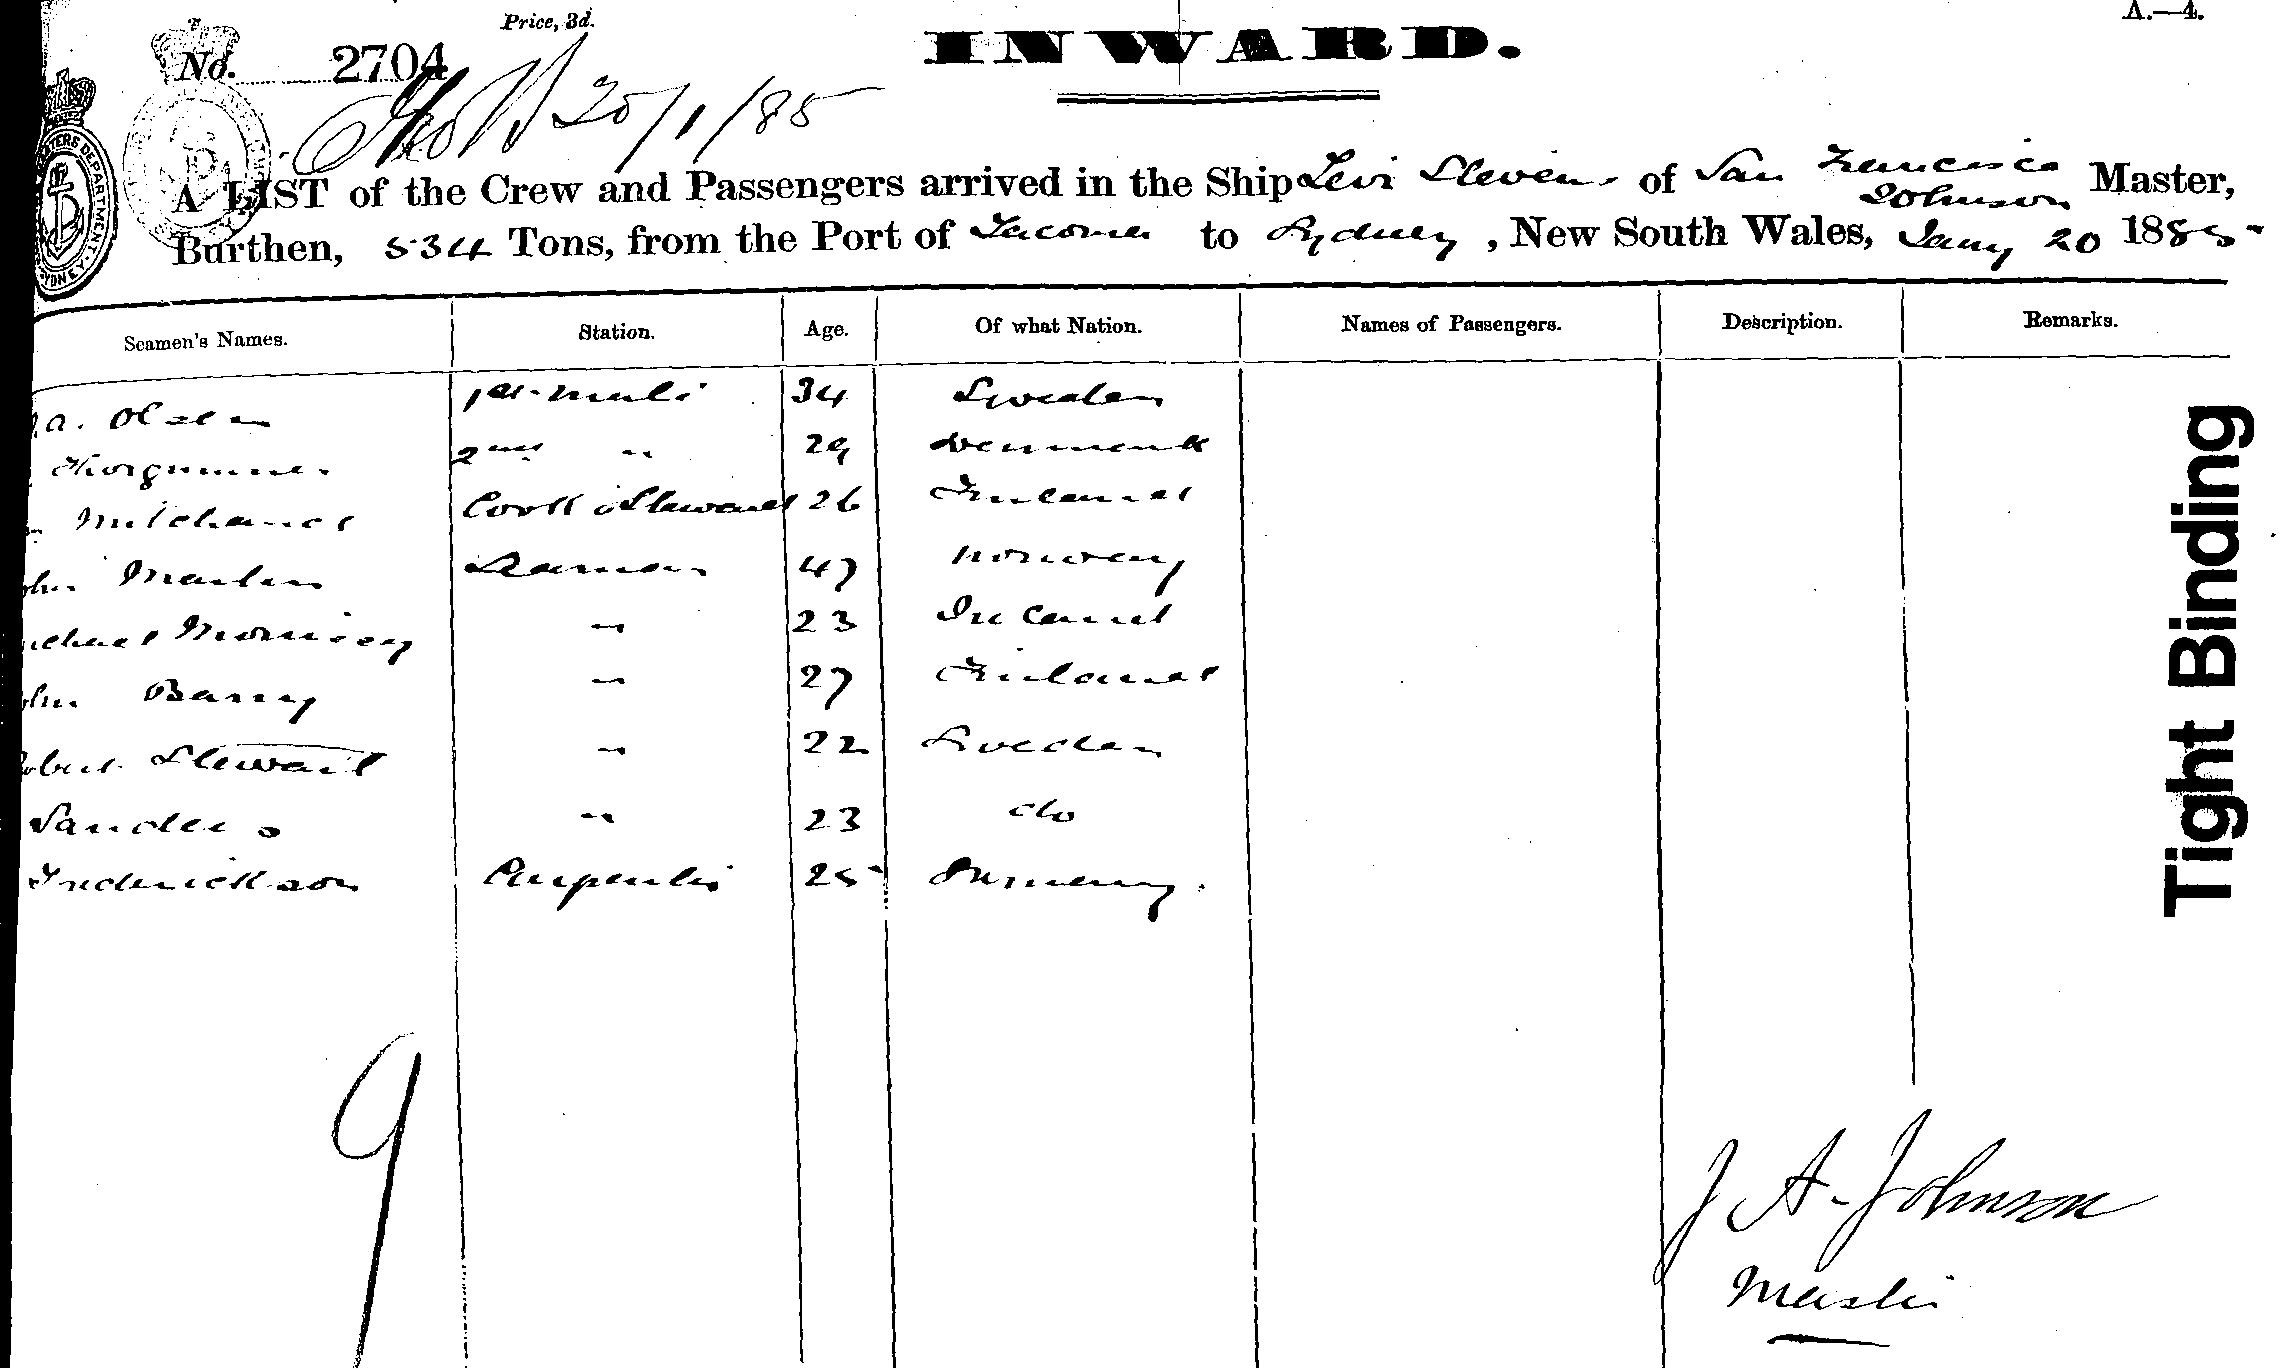 Price, 3d.
A.—4.
No. 2704
INWARD.
20/1/85
A LIST of the Crew and Passengers arrived in the Ship Levi Stevens of San Francisco Johnson Master,
Burthen, 534 Tons, from the Port of Tacoma to Sydney, New South Wales, Jany 20 1885
Seamen's Names. Station. Age. Of what Nation. Names of Passengers. Description. Remarks.
a. Olsen 1st mate 34 Sweden
2nd " 29 Denmark
Cook & Steward 26 Finland
John Martin Seaman 47 Norway
Michael Morrisey " 23 Ireland
John Barry " 27 Finland
Robert Stewart " 22 Sweden
Sanders " 23 do
Frederickson Carpenter 25 Germany.
9
J A. Johnson
Master
Tight Binding